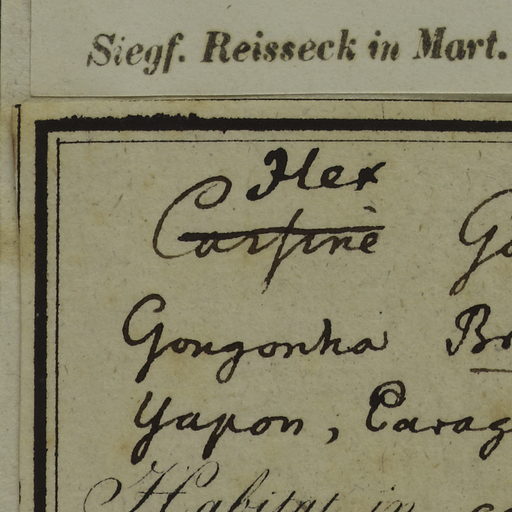 Siegf. Reisseck in Mart.
Ilex
Cassine Go
Gongonha Br
Yapon, Carag
Habitat in